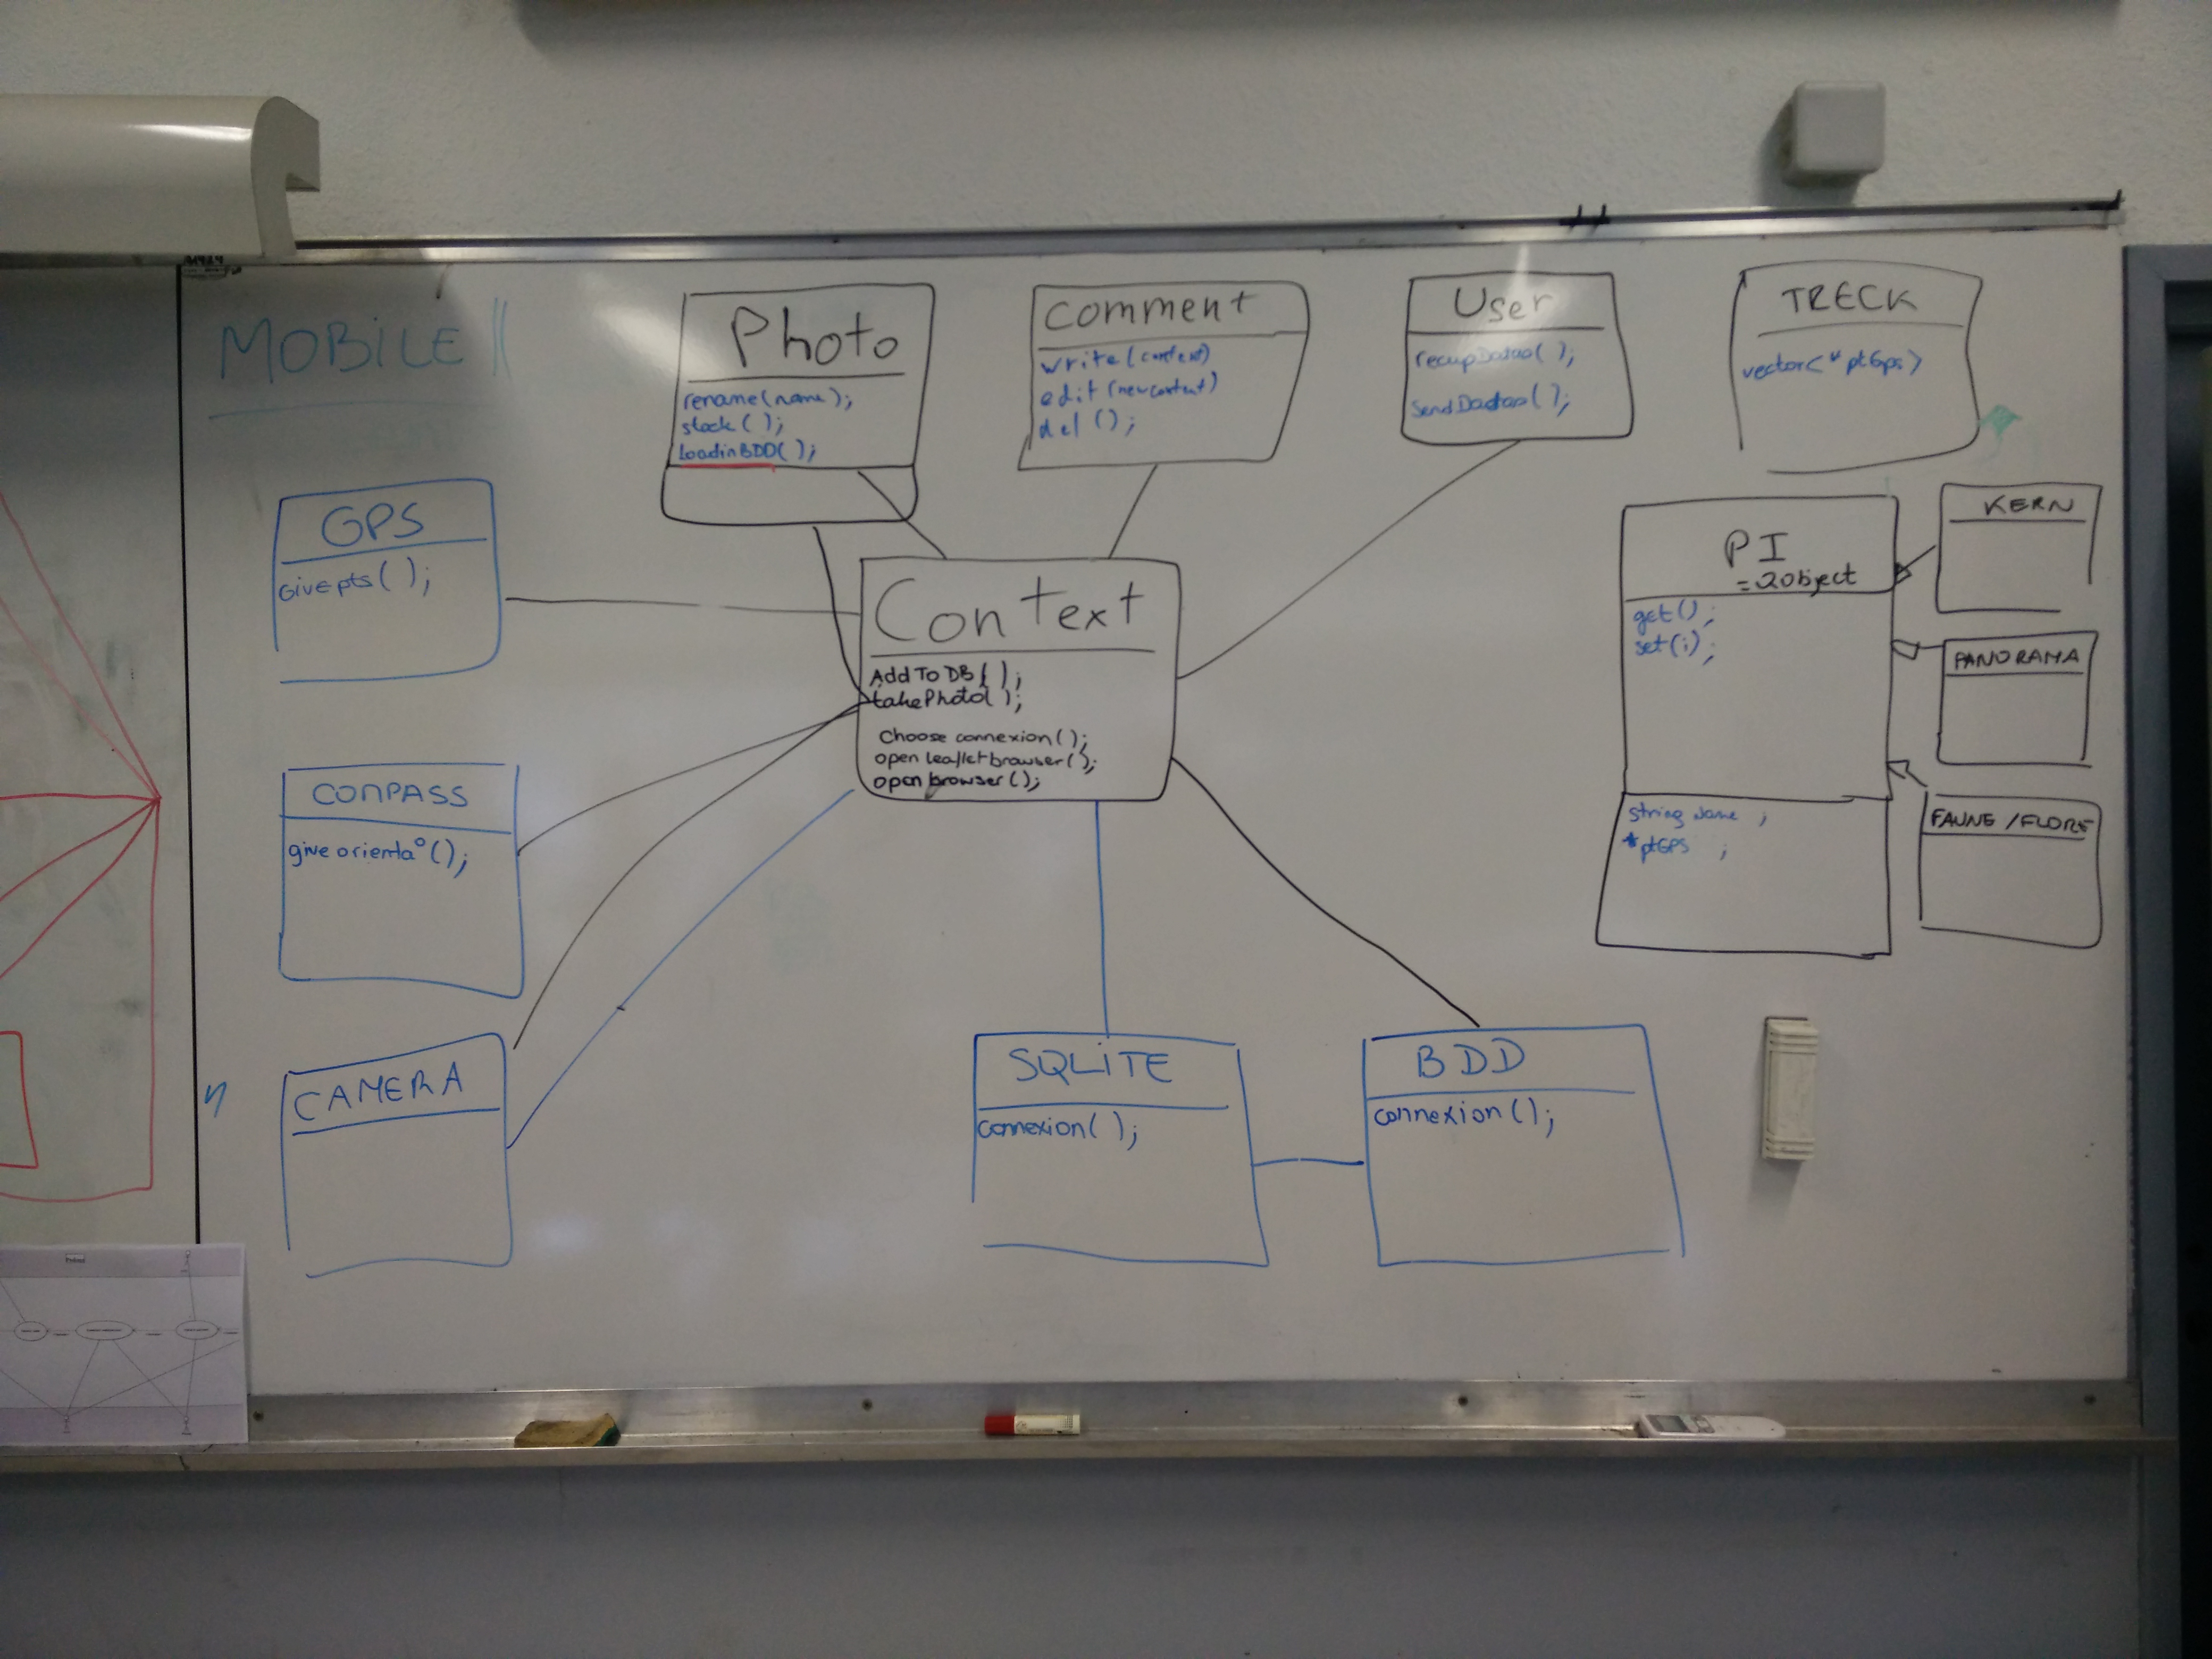 MOBILE
Photo
rename(name);
stock();
LoadinBDD();
comment
write(content)
edit(newcontent)
del();
User
recupDatas();
SendDatas();
TRECK
vector<*ptGps>
GPS
Givepts();
Context
AddToDB();
takePhoto();
Choose connexion();
open leafletbrowser();
open browser();
PI
=20bject
get();
set(i);
string name ;
*ptGPS ;
KERN
PANORAMA
FAUNE/FLORE
COMPASS
give orienta°();
CAMERA
SQLITE
connexion();
BDD
connexion();